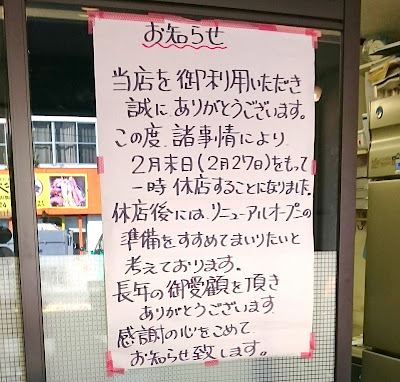 お知らせ
当店を御利用いただき
誠にありがとうございます。
この度、諸事情により
2月末日(2月27日)をもって
一時休店することになりました。
休店後には、リニューアルオープンの
準備をすすめてまいりたいと
考えております。
長年の御愛顧を頂き
ありがとうございます
感謝の心をこめて
お知らせ致します。